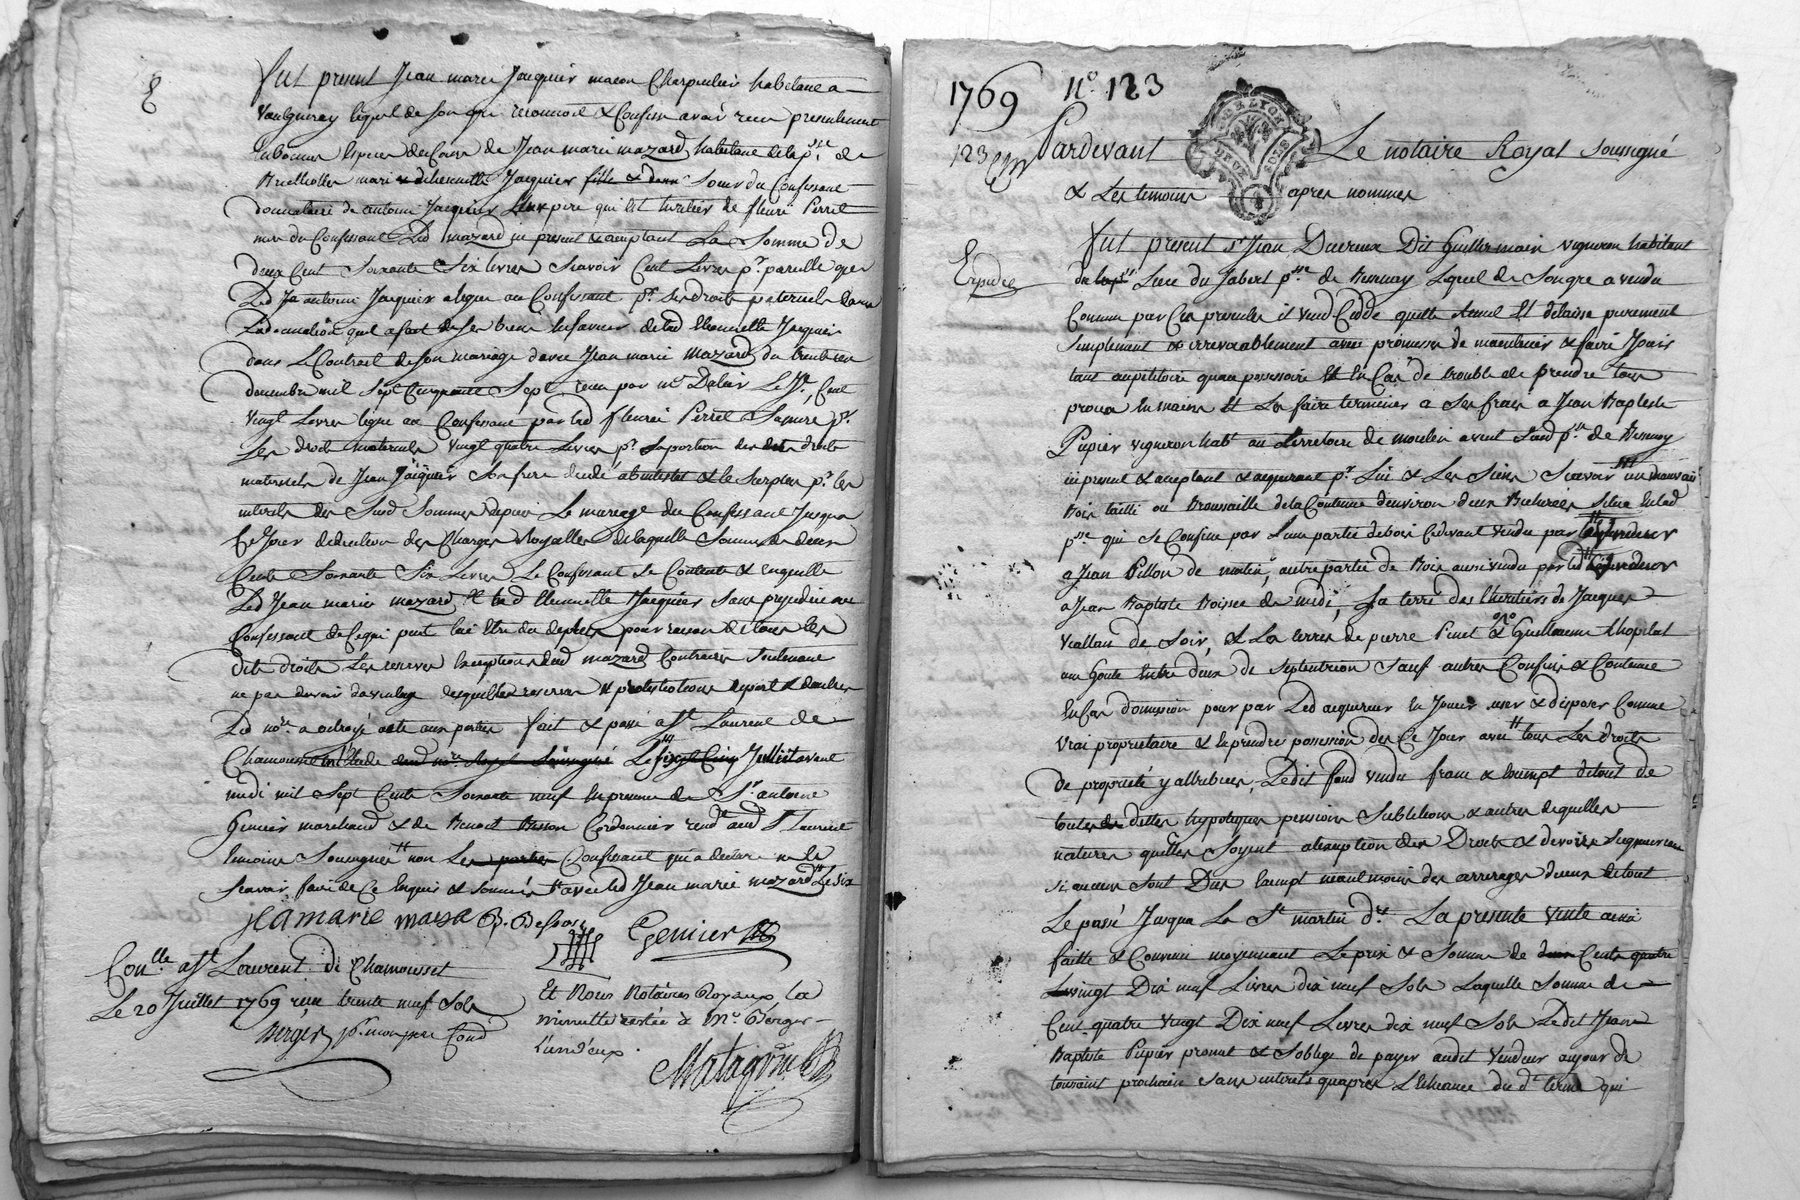 8
fut present Jean marie Jacquier macon Charpentier habitant a
Vaugneray lequel de son gré reconnoit & Confesse avoir receu presentement
en bonnes Especes de Cours de Jean marie mazard habitant de la p.sse de
mari & d'Etiennette Jacquier fille & Soeur du Confessant
donnataire de antoine Jacquier leur pere qui est heritier de fleurie Perret
mere du Confessant Led mazard icy present & acceptant La Somme de
deux Cent Soixante Six livres Scavoir Cent Livres p.r pareille que
Led Jacquier a legué au Confessant p.r Ses droits paternels dans
La donnation quil a fait de Ses biens en faveur de lad Etiennette Jacquier
dans Le Contrat de Son mariage d'avec Jean marie Mazard du
decembre mil Sept Cinquante Sept receu par m.e Cent
Vingt Livres legué au Confessant par lad fleurie Perret Sa mere p.r
Ses droits maternels Vingt quatre Livres p.r Sa portion des droits
maternels de Jean Jacquier Son frere decedé abintestat & le Surplus p.r les
interets des Susd Sommes depuis Le mariage du Confessant Jusqua
Ce Jour deduction des Charges Royalles de laquelle Somme de deux
Cents Soixante Six Livres Le Confessant Se Contente & en quitte
Led Jean marie mazard & lad Etiennette Jacquier Sans prejudice au
Confessant de Ce qui peut lui Etre du de plus pour raison de tous les
dits droits Les reserves Exceptions dud mazard Contraires Soutenant
ne pas devoir davantage desquelles reserves & protestations
Led no.re a octroyé acte aux parties fait & passé a S.t Laurent de
Chamousset Juillet avant
midi mil Sept Cents Soixante neuf En presence de S.r antoine
Genier marchand & de Benoit Besson Cordonnier aud S.t Laurent
temoins Soussignés non Les parties Confessant qui a declaré ne le
Scavoir faire de Ce Enquis & Sommé avec led Jean marie mazard
JEAMARIE MAISA B. Besson Genier
Con.lle a S.t Laurent de Chamousset
Le 20 Juillet 1769 receu trente neuf Sols
Berger p.r mon pere
Et Nous Notaires Royaux la
minutte restée à M.e Berger
L'un d'eux
Matagrin
1769 N.o 123
123
GEN LYON
DEUX SOLS
Pardevant Le notaire Royal Soussigné
& Les temoins apres nommés
Expedié
fut present S.r Jean Ducreux Dit Guillermain vigneron habitant
du Lieu du Jabert p.sse de Bessenay Lequel de Son gré a vendu
Comme par Ces presentes il vend Cedde quitte & delaisse purement
Simplement & irrevocablement avec promesse de maintenir & faire Jouir
tant au petitoire quau possessoire Et En Cas de trouble de prendre tous
proces En mains Et Les faire terminer a Ses frais a Jean Baptiste
Pupier vigneron hab.t au territoire de moulin avent Susd p.sse de Bessenay
ici present & acceptant & acquerant p.r Lui & Les Siens Scavoir un mauvais
Bois taillis ou Broussaille de la Contenue d'environ deux Bicherees Situé En lad
p.sse qui Se Confine par d'une partie de bois Cidevant vendu par led vendeur
a Jean Pillon de matin, autre partie de Bois aussi vendu par led vendeur
a Jean Baptiste Boissee de midi, La terre des heritiers de Jacques
Viallan de Soir, & Les terres de pierre Pinet & Guillaume Lhopital
une Goute Entre deux de Septentrion Sauf autres Confins & Contenue
En Cas d'omission pour par Led acquereur En Jouir user & disposer Comme
vrai proprietaire & En prendre possession des Ce Jour avec tous Les droits
de proprieté y attribués, Ledit fond vendu franc & Exempt de tout de
toutes dettes hypoteques pensions Substitutions & autres de quelles
natures quelles Soyent a l'exception des Droits & devoirs Seigneuriaux
Si aucuns Sont Dus Exempt neanmoins des arrerages de tout
Le passé Jusqua La S.t martin d.re La presente vente ainsi
faitte & Convenu moyennant Le prix & Somme de Cents quatre
vingt Dix neuf Livres dix neuf Sols Laquelle Somme de
Cent quatre Vingt Dix neuf Livres dix neuf Sols Ledit Jean
Baptiste Pupier promet & S'oblige de payer audit Vendeur au Jour de
toussaint prochaine Sans interets quapres L'Echeance du d.t terme qui